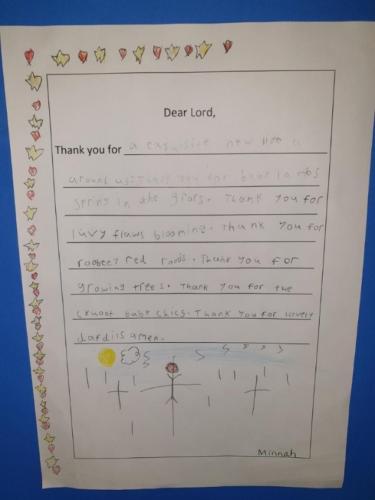 Dear Lord,
Thank you for a exquisite new life
around us. Thank you for baby lambs
spring in the grass. Thank you for
luvy flaws blooming. Thank you for
red roods. Thank you for
growing trees. Thank you for the
baby chics. Thank you for lovely
dafdils amen.
Minnah